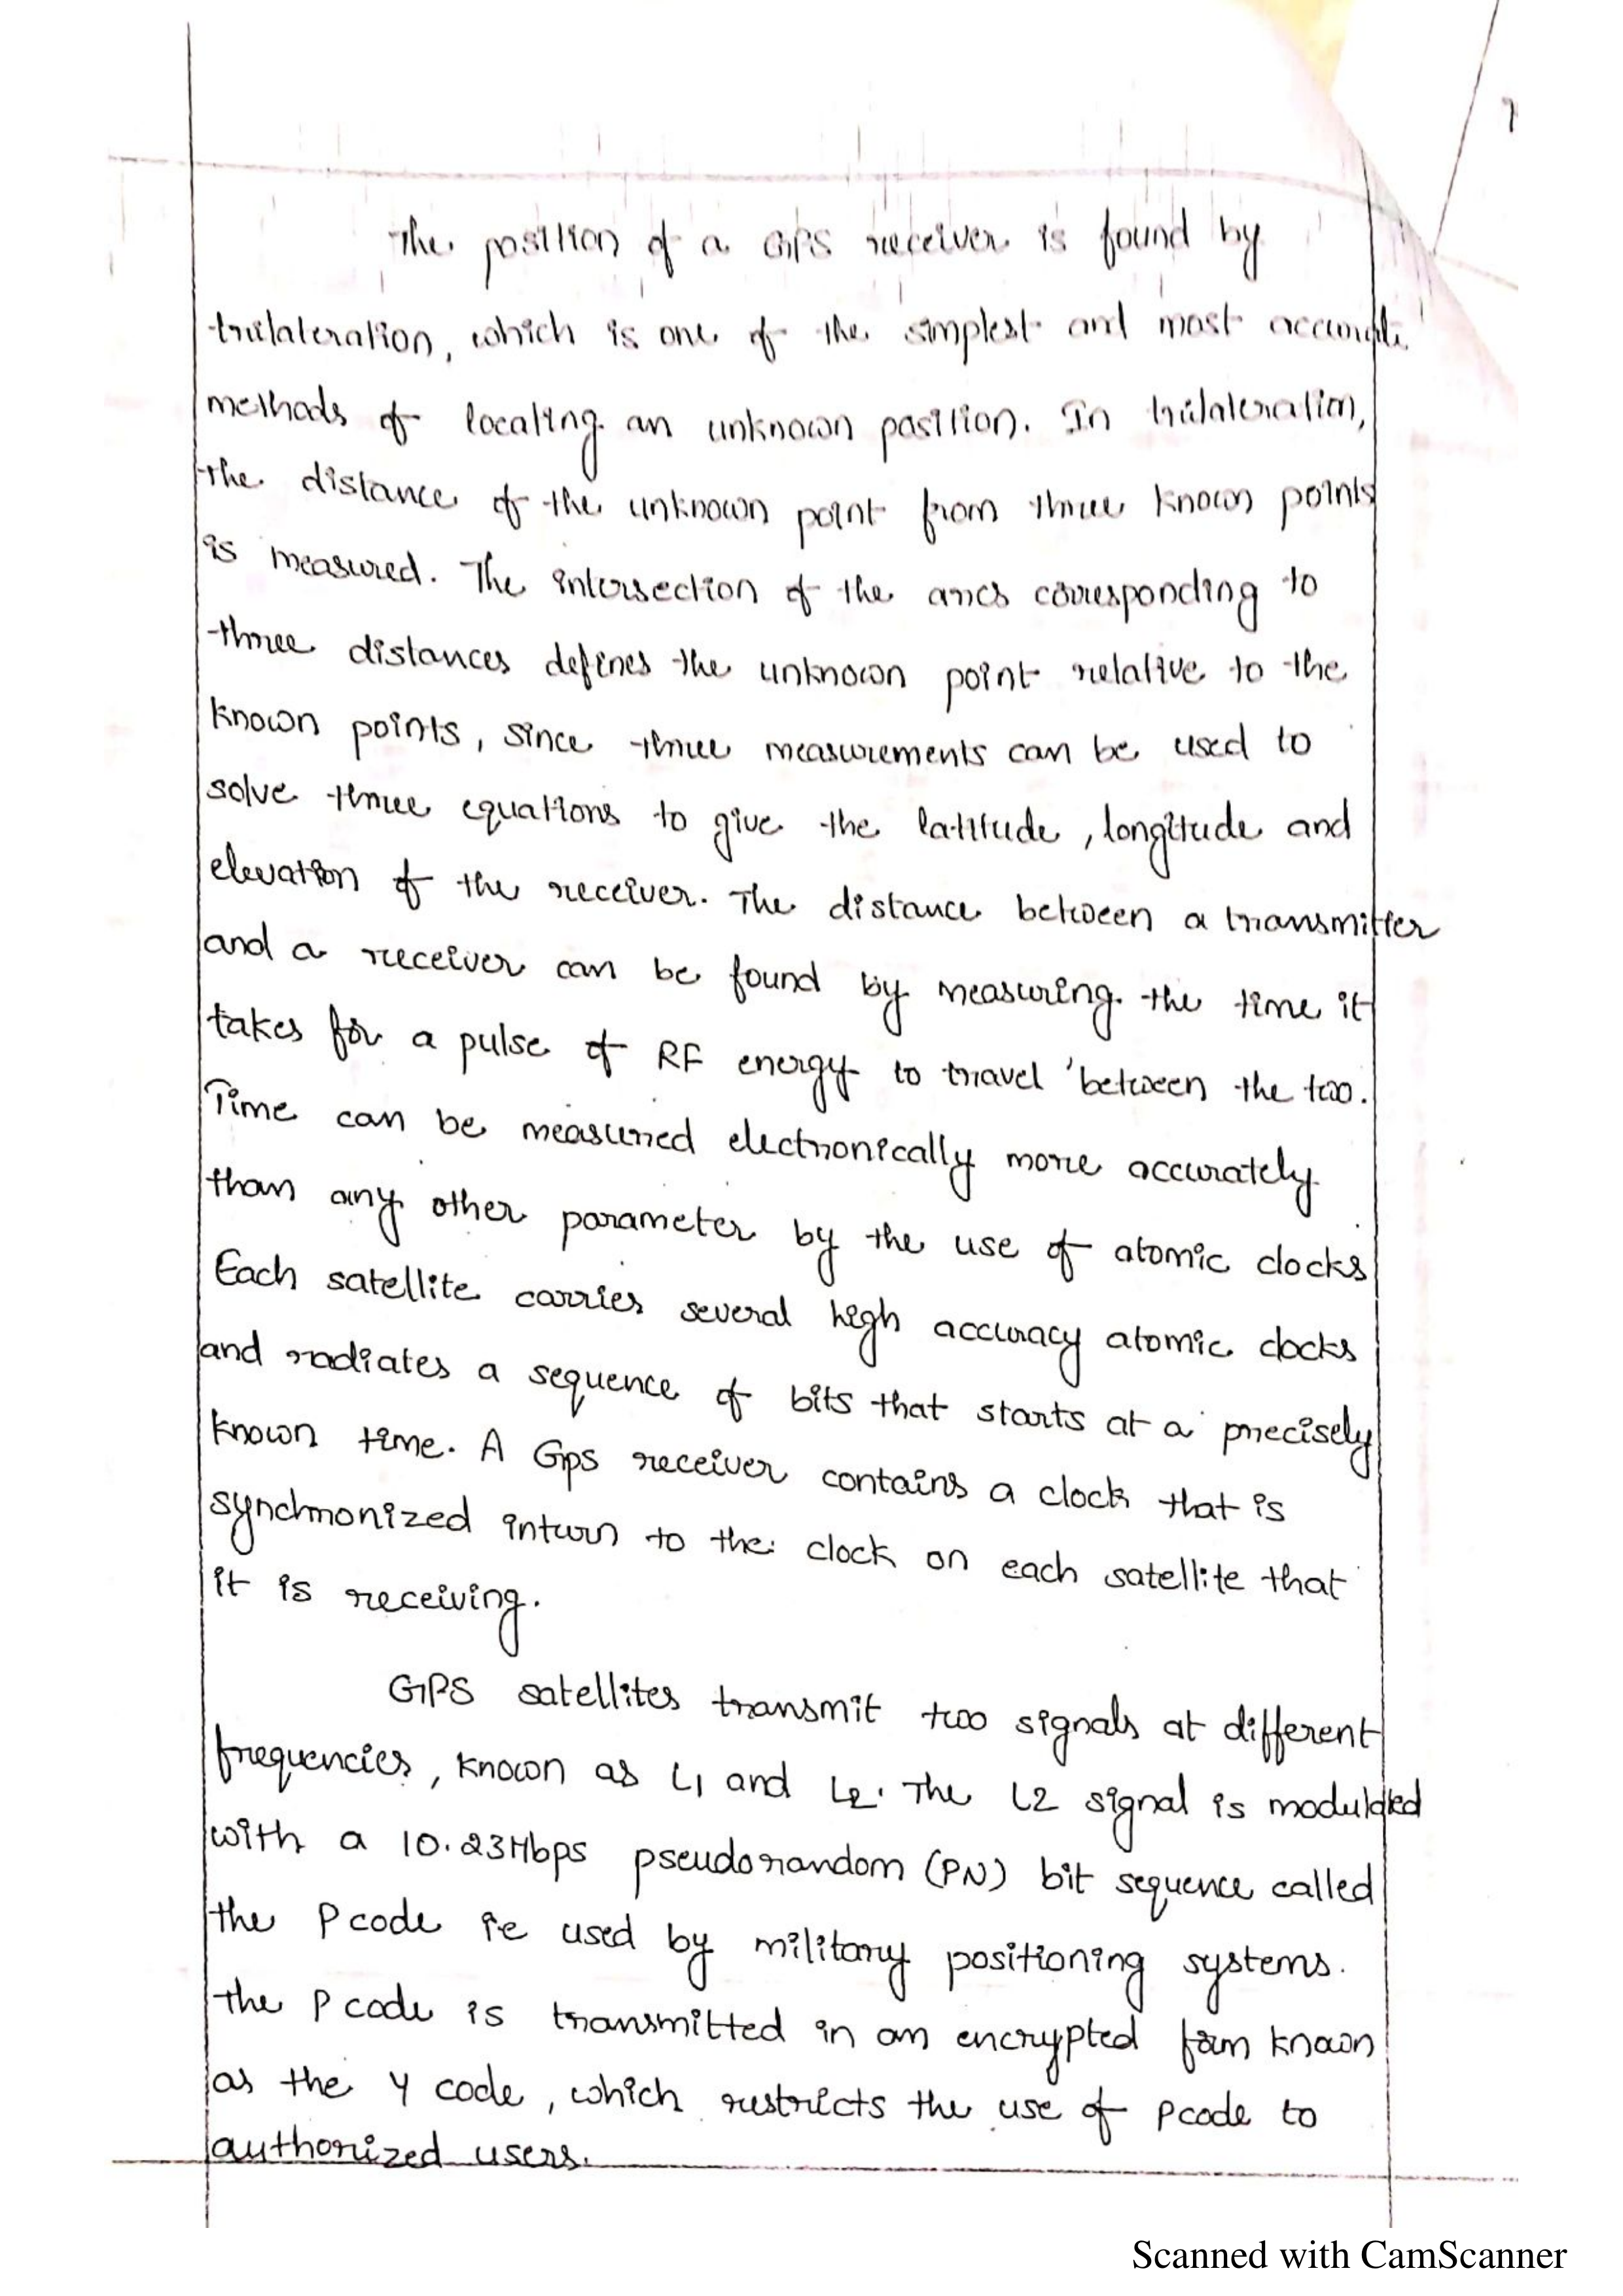 7
The position of a GPS receiver is found by
trilateration, which is one of the simplest and most accurate
methods of locating an unknown position. In trilateration,
the distance of the unknown point from three known points
is measured. The intersection of the arcs corresponding to
three distances defines the unknown point relative to the
known points, since three measurements can be used to
solve three equations to give the latitude, longitude and
elevation of the receiver. The distance between a transmitter
and a receiver can be found by measuring the time it
takes for a pulse of RF energy to travel between the two.
Time can be measured electronically more accurately
than any other parameter by the use of atomic clocks
Each satellite carries several high accuracy atomic clocks
and radiates a sequence of bits that starts at a precisely
known time. A Gps receiver contains a clock that is
synchronized inturn to the clock on each satellite that
it is receiving.
GPS satellites transmit two signals at different
frequencies, known as L1 and L2. The L2 signal is modulated
with a 10.23Mbps pseudorandom (PN) bit sequence called
the P code ie used by military positioning systems.
the P code is transmitted in an encrypted form known
as the Y code, which restricts the use of Pcode to
authorized users.
Scanned with CamScanner